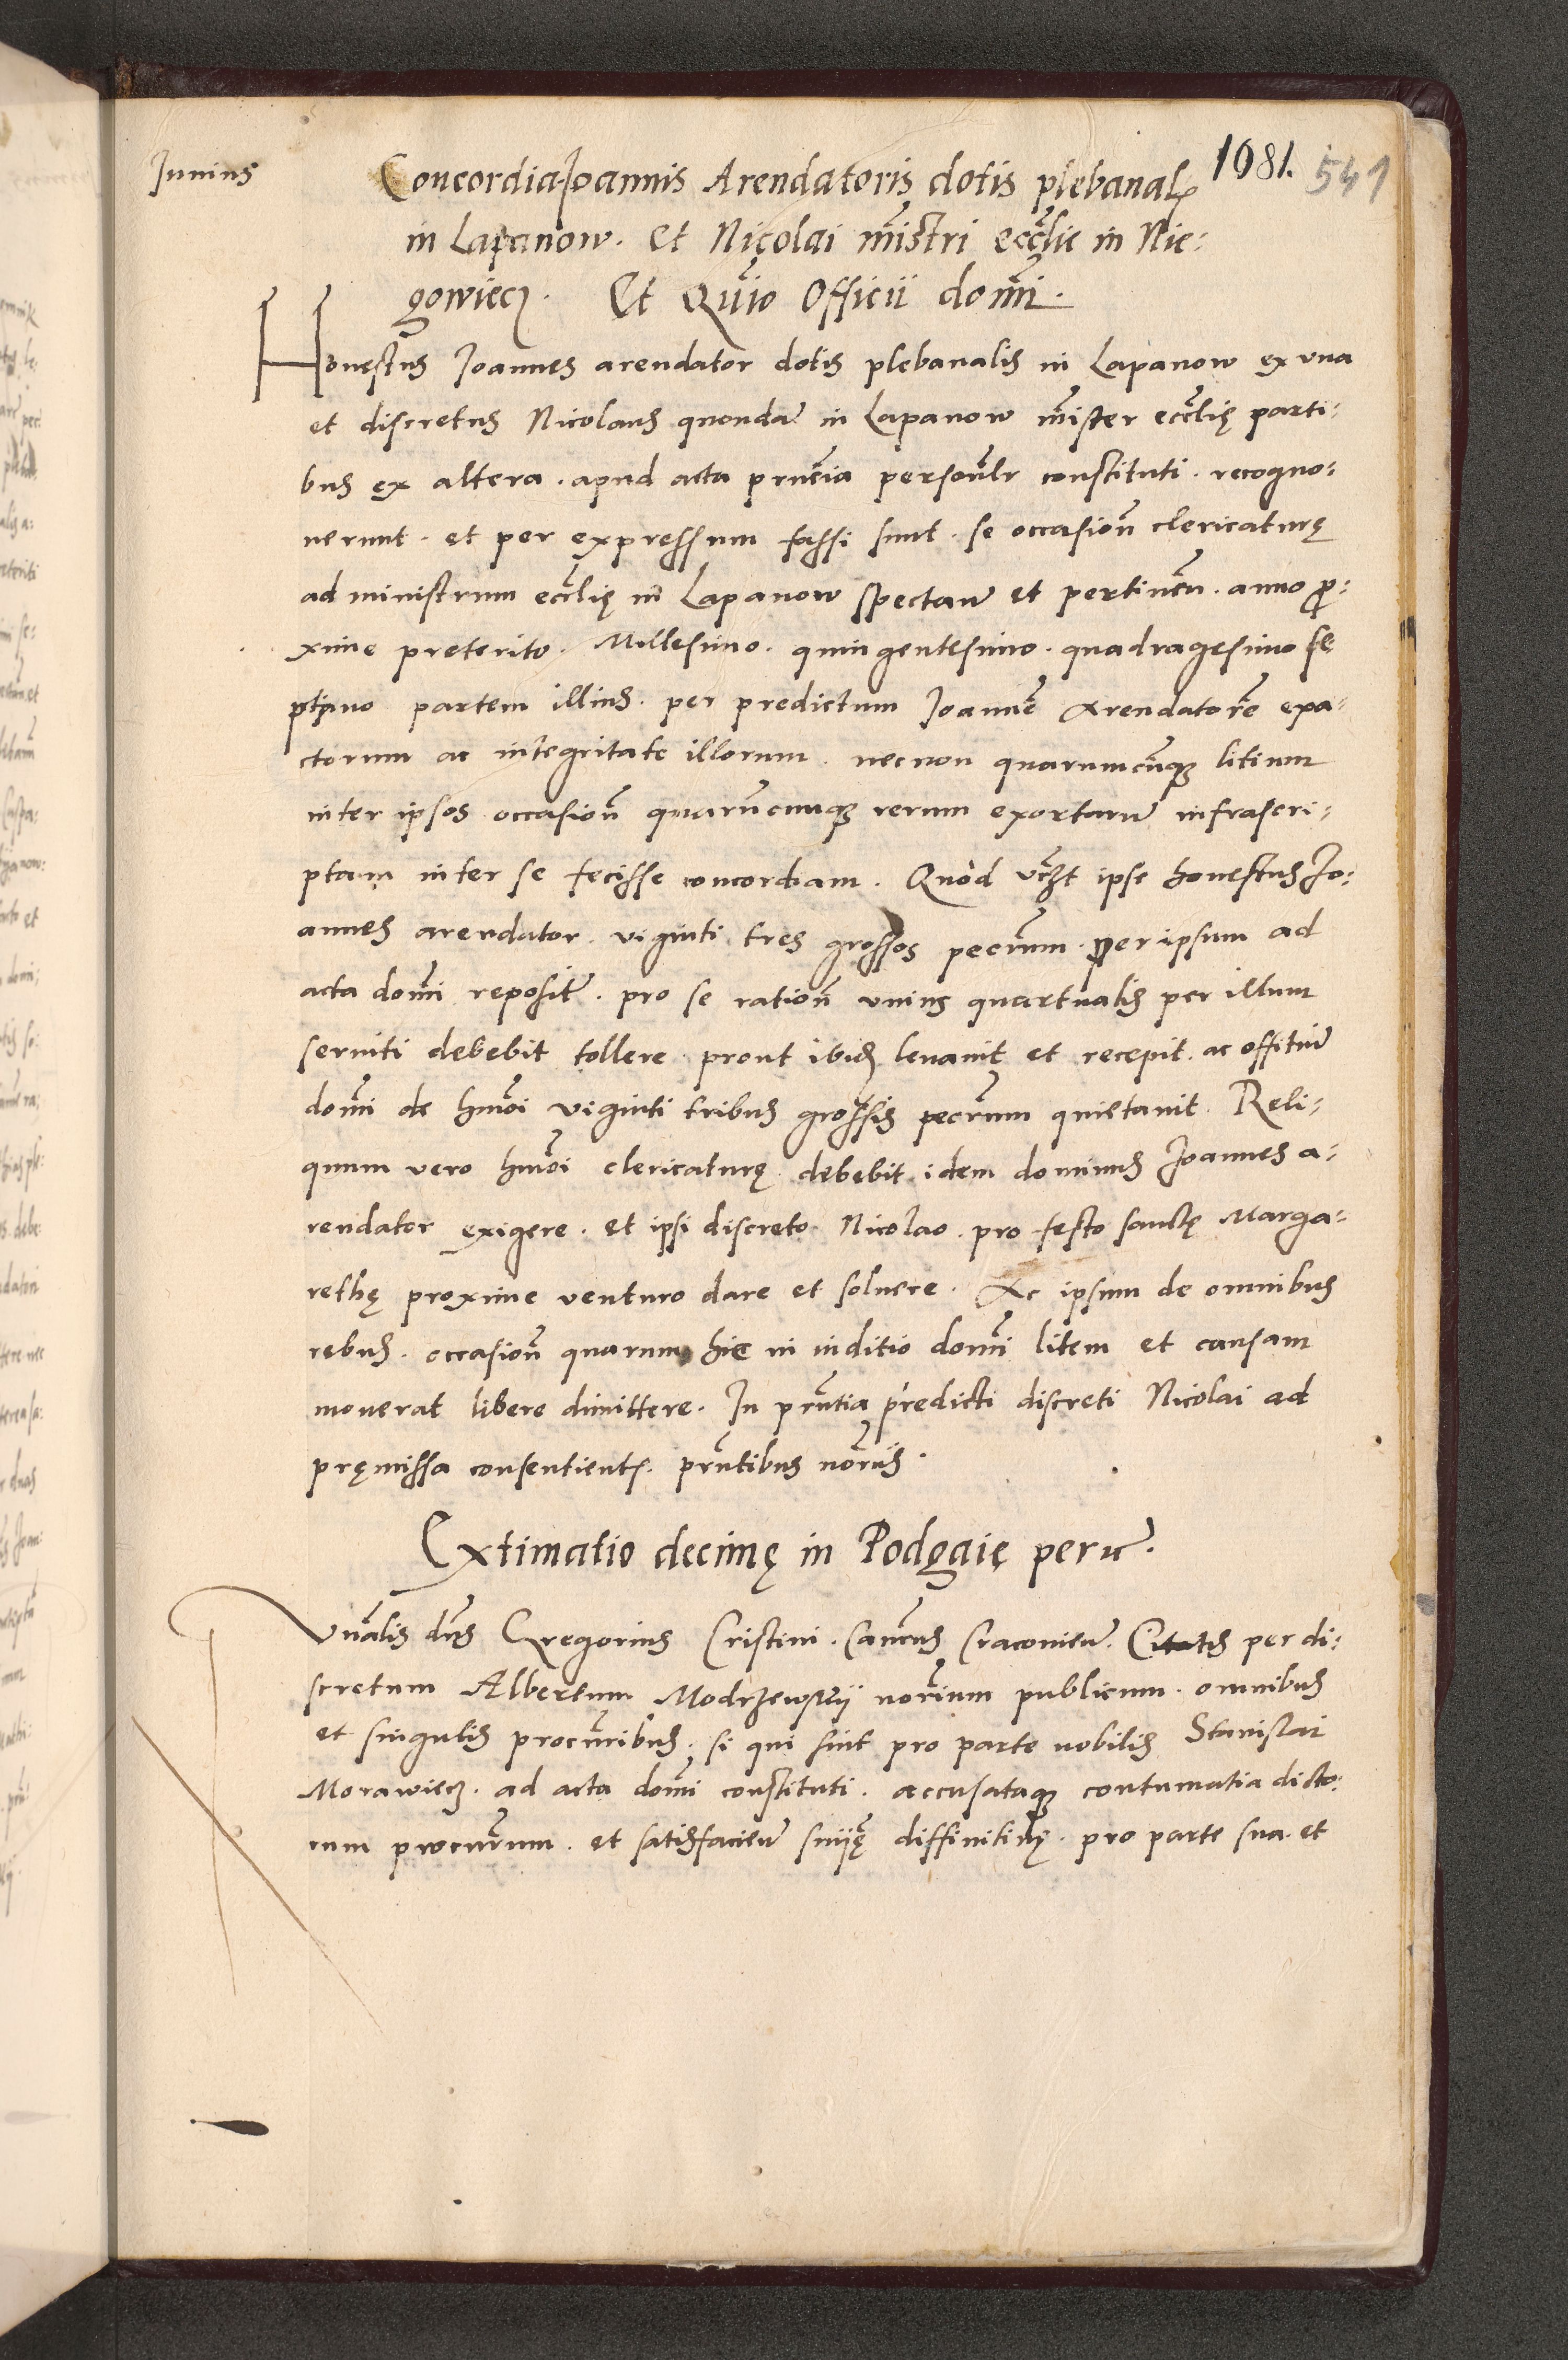 Junius
1081. 541
Concordia Joannis Arendatoris dotis plebanal
in Lapanow. Et Nicolai mistri ecclie in Nie:
gowiecz. Et Quio Officii domi.
Honestus Joannes arendator dotis plebanalis in Lapanow ex vna
et discretus Nicolaus quonda in Lapanow mister ecclię parti:
bus ex altera. apud acta pruia personlr constituti. recogno:
uerunt. et per expressum fassi sunt. se occasion clericaturę
ad ministrum ecclię in Lapanow spectan et pertinen. anno pro:
xime preterito. Millesimo. quingentesimo. quadragesimo se
ptimo partem illius. per predictum Joanne Arendatore exa:
ctorum ac integritate illorum. necnon quarumcunq litium
inter ipsos occasion quarucunq rerum exortaru infrascri:
ptam inter se fecisse concordiam. Quod vczt ipse honestus Jo:
annes arendator. viginti tres grossos pecrum. per ipsum ad
acta domi reposit. pro se ration vnius quartualis per illum
seruiti debebit tollere. prout ibid leuauit et recepit. ac offitiu
domi de hmoi viginti tribus grossis pecrum quietauit. Reli:
quum vero hmoi clericaturę. debebit idem dominus Joannes a:
rendator exigere. et ipsi discreto Nicolao. pro festo sanctę Marga:
rethę proxime venturo dare et soluere. Ac ipsum de omnibus
rebus. occasion quarum hic in iuditio domi litem et causam
mouerat libere dimittere. In pruntia predicti discreti Nicolai ad
pręmissa consentient. pruntibus noriis.
Extimatio decimę in Podgaię peru.
Vnalis dns Gregorius Cristini. Canrus Cracouien. Citatis per di:
scretum Albertum Modrzewsky norium publicum. omnibus
et singulis procuribus. si qui sint pro parte nobilis Stanislai
Morawiecz. ad acta domi constituti. accusataq contumatia dicto:
rum procurum. et satisfacien sniję diffinitiuę. pro parte sua et